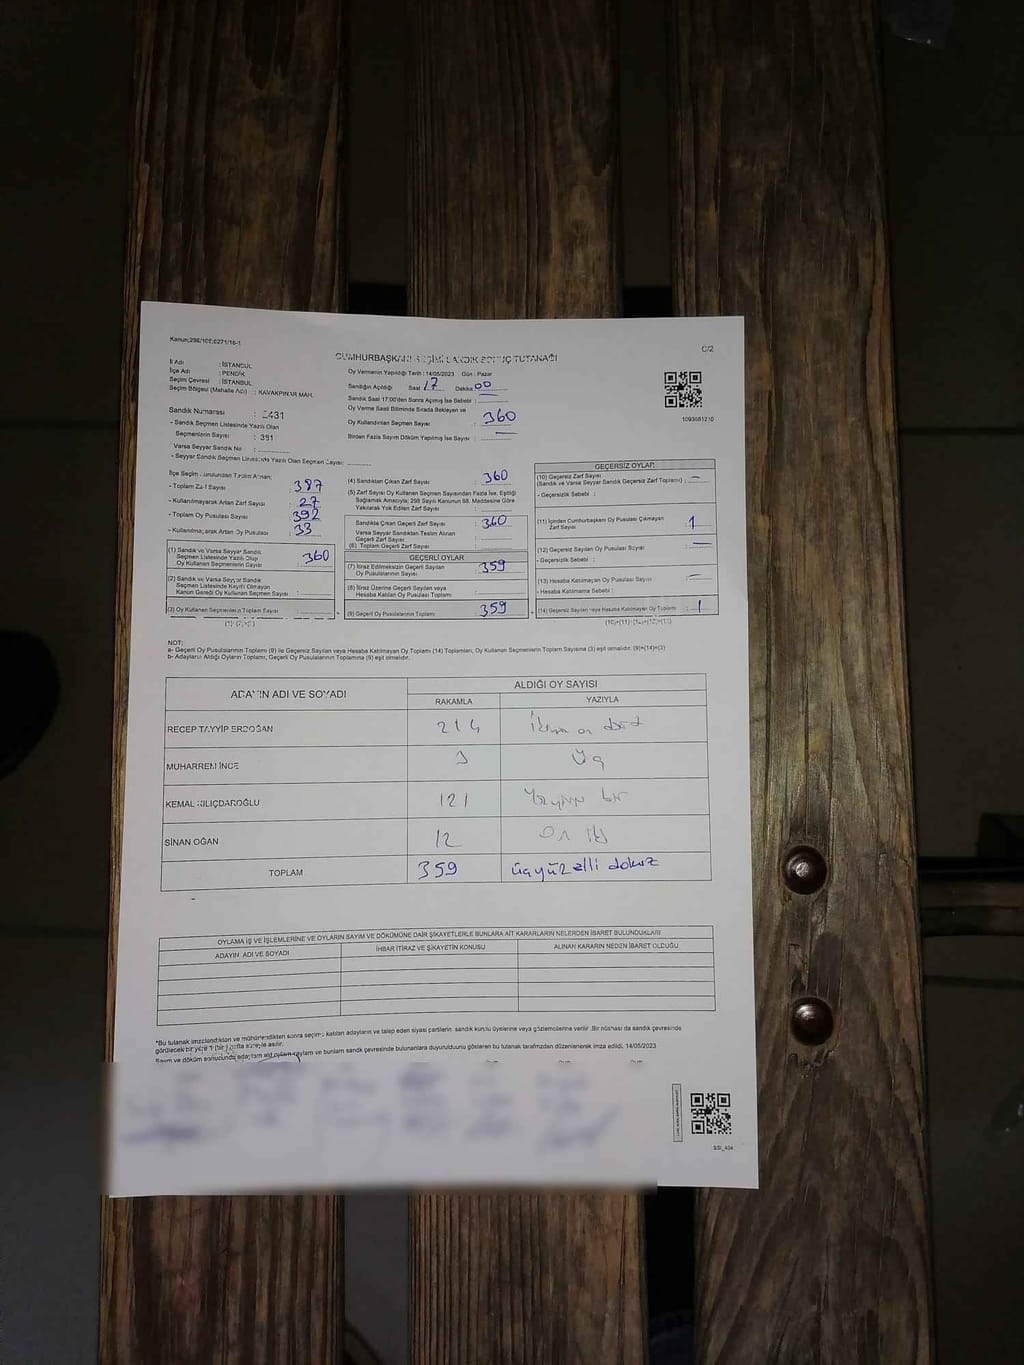 Kanun;298/105,6271/16-1
C/2
CUMHURBAŞKANI SEÇİMİ SANDIK SONUÇ TUTANAĞI
İl Adı : İSTANBUL
İlçe Adı : PENDİK
Seçim Çevresi : İSTANBUL
Seçim Bölgesi (Mahalle Adı) : KAVAKPINAR MAH.
Sandık Numarası : 2431
- Sandık Seçmen Listesinde Yazılı Olan
Seçmenlerin Sayısı : 391
Varsa Seyyar Sandık No :
- Seyyar Sandık Seçmen Listesinde Yazılı Olan Seçmen Sayısı:
Oy Vermenin Yapıldığı Tarih : 14/05/2023 Gün : Pazar
Sandığın Açıldığı Saat : 17 Dakika : 00
Sandık Saat 17:00'den Sonra Açılmış İse Sebebi : —
Oy Verme Saati Bitiminde Sırada Bekleyen ve
Oy Kullandırılan Seçmen Sayısı : 360
Birden Fazla Sayım Döküm Yapılmış İse Sayısı : —
1093681210
İlçe Seçim Kurulundan Teslim Alınan;
- Toplam Zarf Sayısı : 387
- Kullanılmayarak Artan Zarf Sayısı : 27
- Toplam Oy Pusulası Sayısı : 392
- Kullanılmayarak Artan Oy Pusulası : 33
(1) Sandık ve Varsa Seyyar Sandık
Seçmen Listesinde Yazılı Olup
Oy Kullanan Seçmenlerin Sayısı : 360
(2) Sandık ve Varsa Seyyar Sandık
Seçmen Listesinde Kayıtlı Olmayan
Kanun Gereği Oy Kullanan Seçmen Sayısı :
(3) Oy Kullanan Seçmenlerin Toplam Sayısı :
(1)+(2)=(3)
(4) Sandıktan Çıkan Zarf Sayısı : 360
(5) Zarf Sayısı Oy Kullanan Seçmen Sayısından Fazla İse, Eşitliği
Sağlamak Amacıyla; 298 Sayılı Kanunun 98. Maddesine Göre
Yakılarak Yok Edilen Zarf Sayısı :
Sandıkta Çıkan Geçerli Zarf Sayısı : 360
Varsa Seyyar Sandıktan Teslim Alınan
Geçerli Zarf Sayısı :
(6) Toplam Geçerli Zarf Sayısı :
GEÇERLİ OYLAR
(7) İtiraz Edilmeksizin Geçerli Sayılan
Oy Pusulalarının Sayısı : 359
(8) İtiraz Üzerine Geçerli Sayılan veya
Hesaba Katılan Oy Pusulası Toplamı :
(9) Geçerli Oy Pusulalarının Toplamı : 359
GEÇERSİZ OYLAR
(10) Geçersiz Zarf Sayısı
(Sandık ve Varsa Seyyar Sandık Geçersiz Zarf Toplamı) : —
- Geçersizlik Sebebi :
(11) İçinden Cumhurbaşkanı Oy Pusulası Çıkmayan
Zarf Sayısı : 1
(12) Geçersiz Sayılan Oy Pusulası Sayısı : —
- Geçersizlik Sebebi :
(13) Hesaba Katılmayan Oy Pusulası Sayısı : —
- Hesaba Katılmama Sebebi :
(14) Geçersiz Sayılan veya Hesaba Katılmayan Oy Toplamı : 1
(10)+(11)+(12)+(13)=(14)
NOT:
a- Geçerli Oy Pusulalarının Toplamı (9) ile Geçersiz Sayılan veya Hesaba Katılmayan Oy Toplamı (14) Toplamları, Oy Kullanan Seçmenlerin Toplam Sayısına (3) eşit olmalıdır. (9)+(14)=(3)
b- Adayların Aldığı Oyların Toplamı, Geçerli Oy Pusulalarının Toplamına (9) eşit olmalıdır.
ADAYIN ADI VE SOYADI
ALDIĞI OY SAYISI
RAKAMLA YAZIYLA
RECEP TAYYİP ERDOĞAN 214
MUHARREM İNCE 3 Üç
KEMAL KILIÇDAROĞLU 121 bir
SİNAN OĞAN 12 on iki
TOPLAM 359 üçyüzelli dokuz
OYLAMA İŞ VE İŞLEMLERİNE VE OYLARIN SAYIM VE DÖKÜMÜNE DAİR ŞİKAYETLERLE BUNLARA AİT KARARLARIN NELERDEN İBARET BULUNDUKLARI
ADAYIN ADI VE SOYADI İHBAR İTİRAZ VE ŞİKAYETİN KONUSU ALINAN KARARIN NEDEN İBARET OLDUĞU
*Bu tutanak imzalandıktan ve mühürlendikten sonra seçime katılan adayların ve talep eden siyasi partilerin sandık kurulu üyelerine veya gözlemcilerine verilir. Bir nüshası da sandık çevresinde
görülecek bir yere 1 (bir) hafta süreyle asılır.
Sayım ve döküm sonucunda adayların aldığı bunların sandık çevresinde bulunanlara duyurulduğunu gösteren bu tutanak tarafımızdan düzenlenerek imza edildi. 14/05/2023
SSI_404